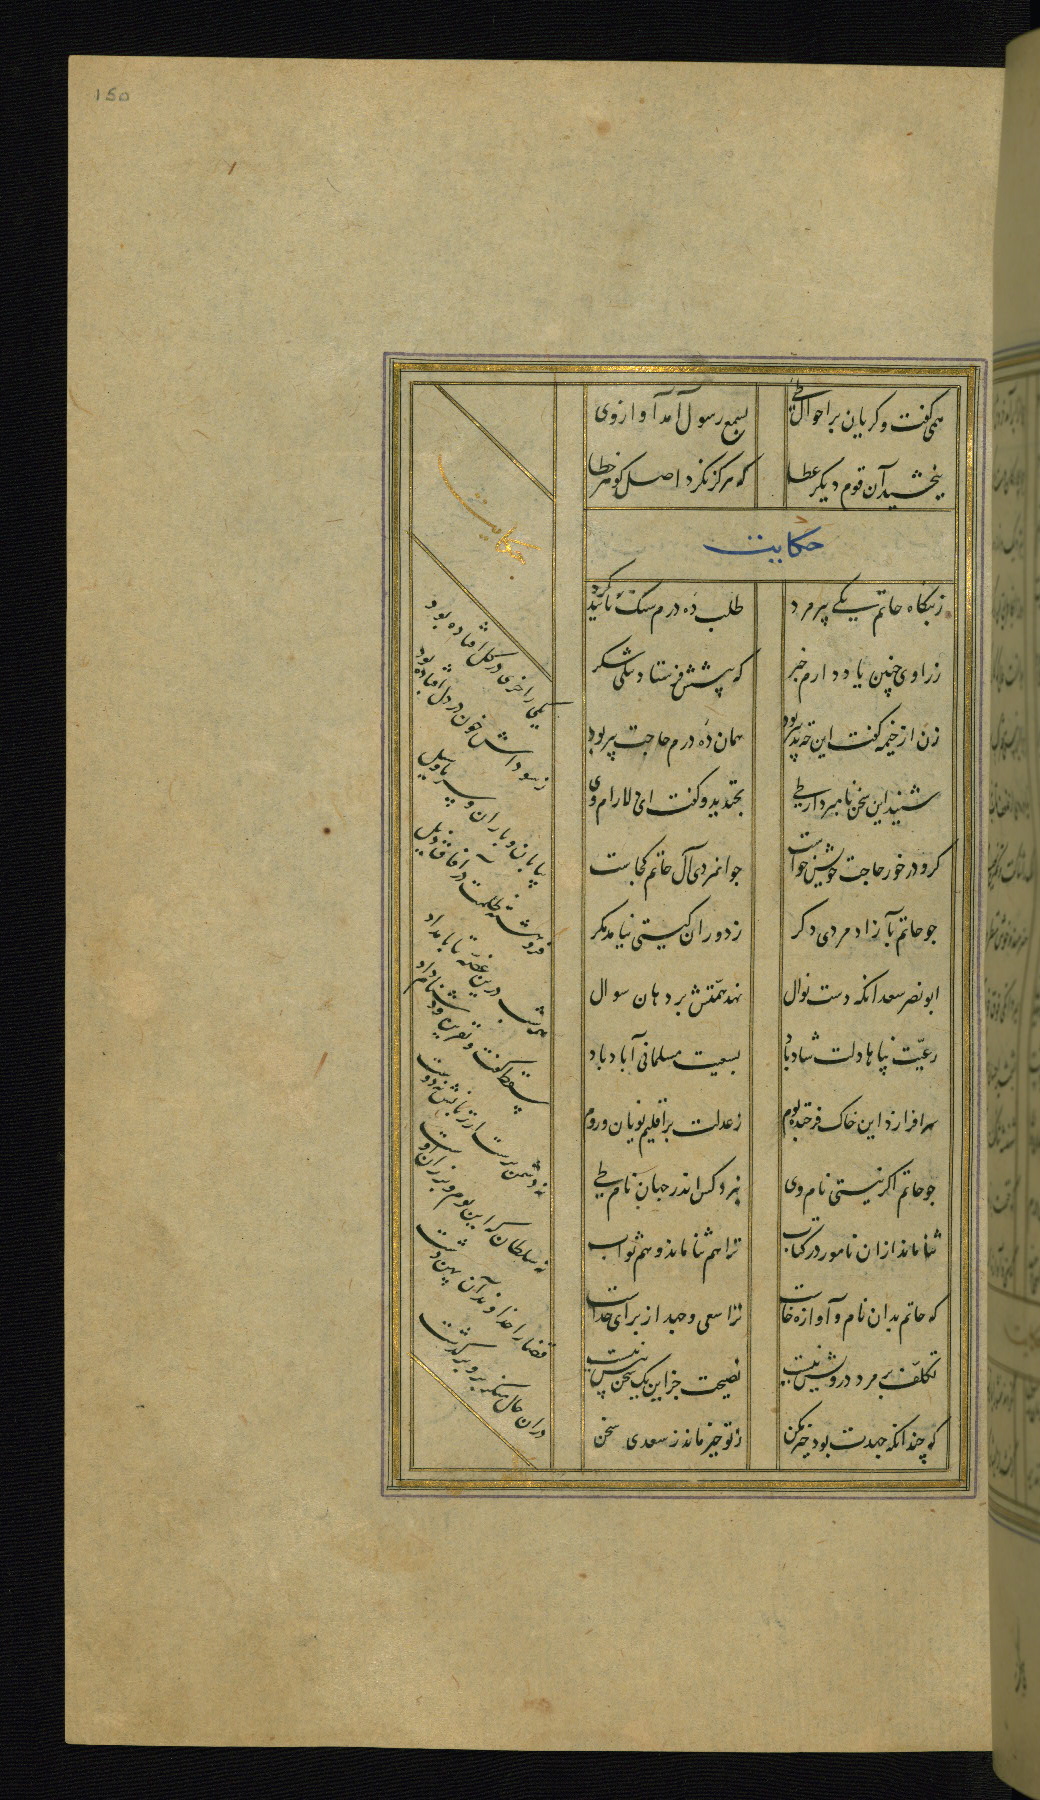 150
همی گفت و گریان بر احوال طی بسمع رسول آمد آواز وی
ببخشید آن قوم دیگر عطا که هرگز نکرد اصل گوهر خطا
حکایت
ز بنگاه حاتم یکی پیرمرد طلب ده درم سنگ فانید کرد
ز راوی چنین یاد دارم خبر که پیشش فرستاد تنگی شکر
زن از خیمه گفت این چه تدبیر بود همان ده درم حاجت پیر بود
شنید این سخن نامبردار طی بخندید و گفت ای دلارام وی
گر او در خور حاجت خویش خواست جوانمردی آل حاتم کجاست
چو حاتم بآزاد مردی دگر ز دوران گیتی نیامد مگر
ابو نصر سعد انکه دست نوال نهد همتش بر دهان سوال
رعیت پناها دلت شاد باد بسعیت مسلمانی آباد باد
سرافرازد این خاک فرخنده بوم ز عدلت بر اقلیم یونان و روم
چو حاتم اگر نیستی نام وی نبردی کس اندر جهان نام طی
ثنا ماند ازان نامور در کتاب ترا هم ثنا ماند و هم ثواب
که حاتم بدان نام و آوازه خواست ترا سعی و جهد از برای خداست
تکلف بر مرد درویش نیست نصیحت جز این یک سخن بیش نیست
که چندانکه جهدت بود خیر کن ز تو خیر ماند ز سعدی سخن
حکایت
یکی را خری در گل افتاده بود
ز سوداش خون در دل افتاده بود
بیابان و باران و سرما و سیل
فروهشته ظلمت در آفاق ذیل
همه شب درین غصه تا بامداد
سقط گفت و نفرین و دشنام داد
نه دشمن برست از زبانش نه دوست
نه سلطان که این بوم و برزان اوست
قضا را خداوند آن پهن دشت
در ان حال منکر برو برگذشت